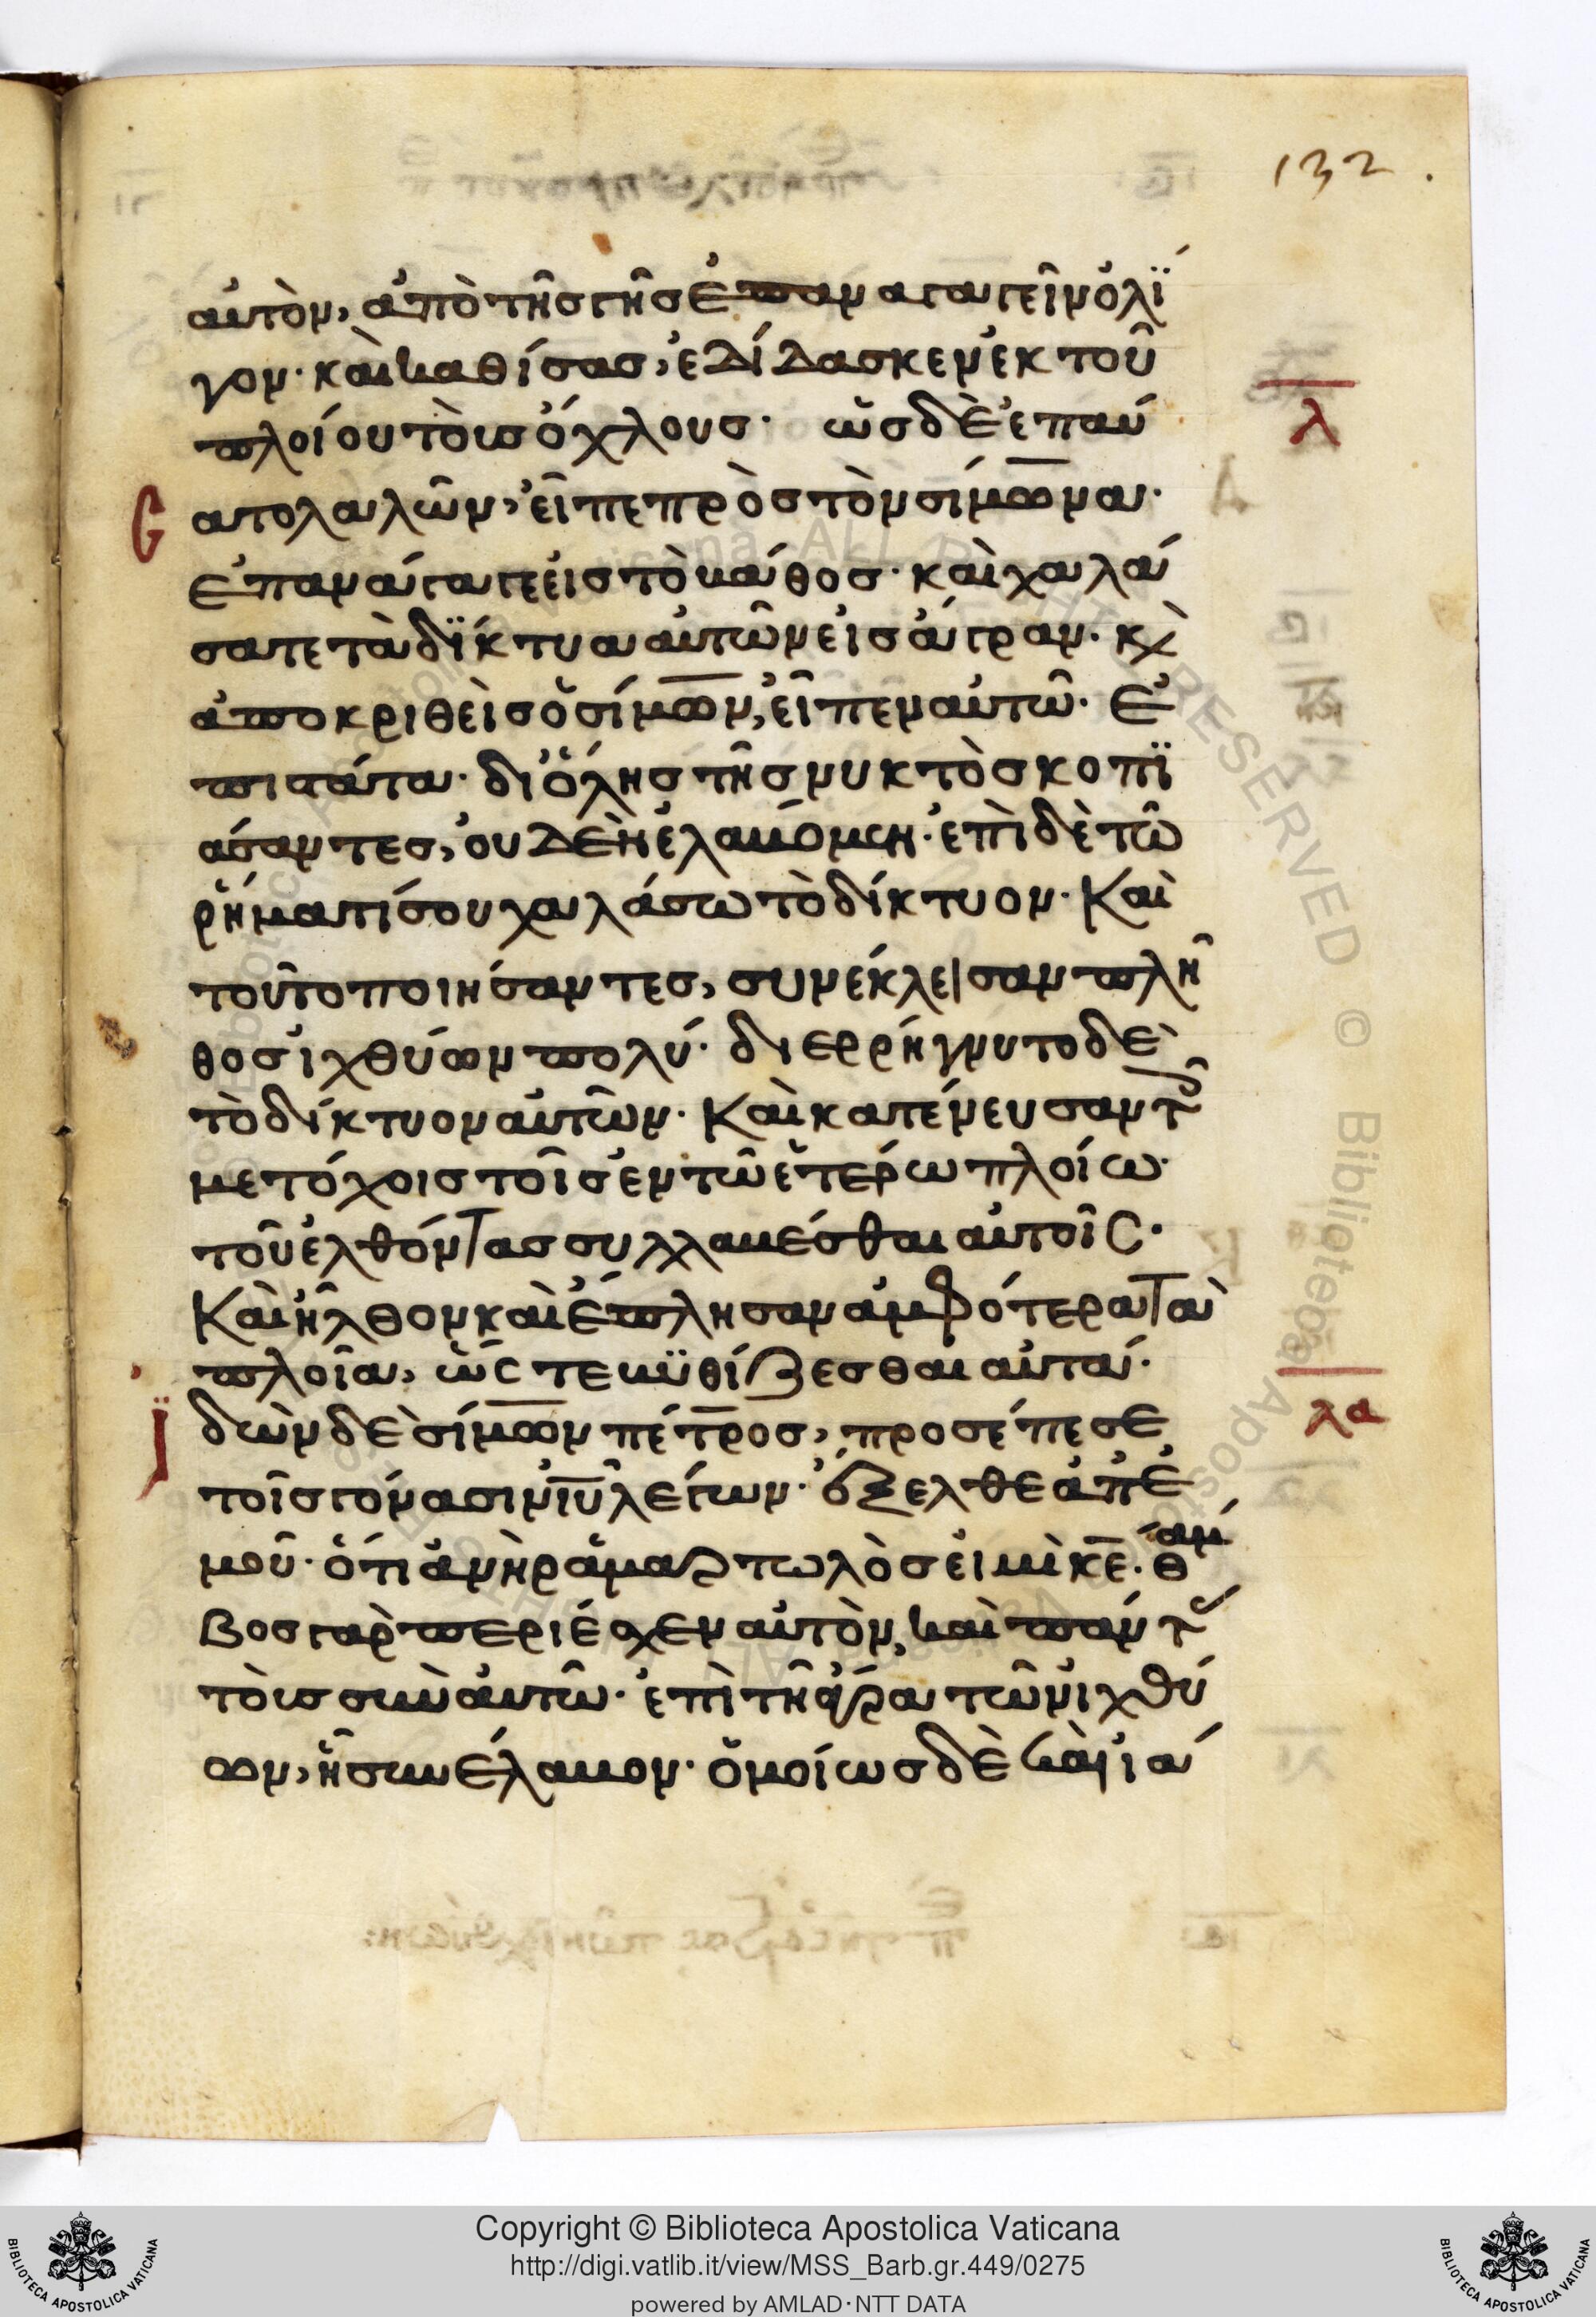 132.
αὐτὸν, ἀπὸ τῆς γῆς ἐπαναγαγεῖν ὀλί
γον· καὶ καθίσας, ἐδίδασκεν ἐκ τοῦ
λ
πλοίου τοὺς ὄχλους· ὡς δὲ ἐπαύ
σατο λαλῶν, εἶπε πρὸς τὸν σίμωνα·
ἐπανάγαγε εἰς τὸ βάθος· καὶ χαλά
σατε τὰ δίκτυα αὐτῶν εἰς ἄγραν· κ(αὶ)
ἀποκριθεὶς ὁ σίμων, εἶπεν αὐτῶ· ἐ
πιστάτα· δι' ὅλης τῆς νυκτὸς κοπϊ
άσαντες, οὐδὲν ἐλάβομεν· ἐπὶ δὲ τῶ
ῥήματί σου χαλάσω τὸ δίκτυον· Καὶ
τοῦτο ποιήσαντες, συνέκλεισαν πλῆ
θος ἰχθύων πολύ· διερρήγνυτο δὲ
τὸ δίκτυον αὐτῶν· Καὶ κατένευσαν τοῖς
μετόχοις τοῖς ἐν τῶ ἑτέρω πλοίω·
τοῦ ἐλθόντας συλλαβέσθαι αὐτοῖς·
Καὶ ἦλθον καὶ ἔπλησαν ἀμφότερα τὰ
πλοῖα, ὥς τε βυθίζεσθαι αὐτά·
λα
Ἰδὼν δὲ σίμων πέτρος, προσέπεσε
τοῖς γόνασιν ἰῦ λέγων· ἔξελθε ἀπ' ἐ
μοῦ· ὅτι ἀνὴρ ἁμαρτωλός εἰμὶ κε̄· θάμ
βος γὰρ περιέσχεν αὐτὸν, καὶ πάντας
τοὺς σὺν αὐτῶ· ἐπὶ τῆ ἄγρα τῶν ἰχθύ
ων, ἧ συνέλαβον· ὁμοίως δὲ καὶ ἰά
Copyright © Biblioteca Apostolica Vaticana
http://digi.vatlib.it/view/MSS_Barb.gr.449/0275
powered by AMLAD·NTT DATA